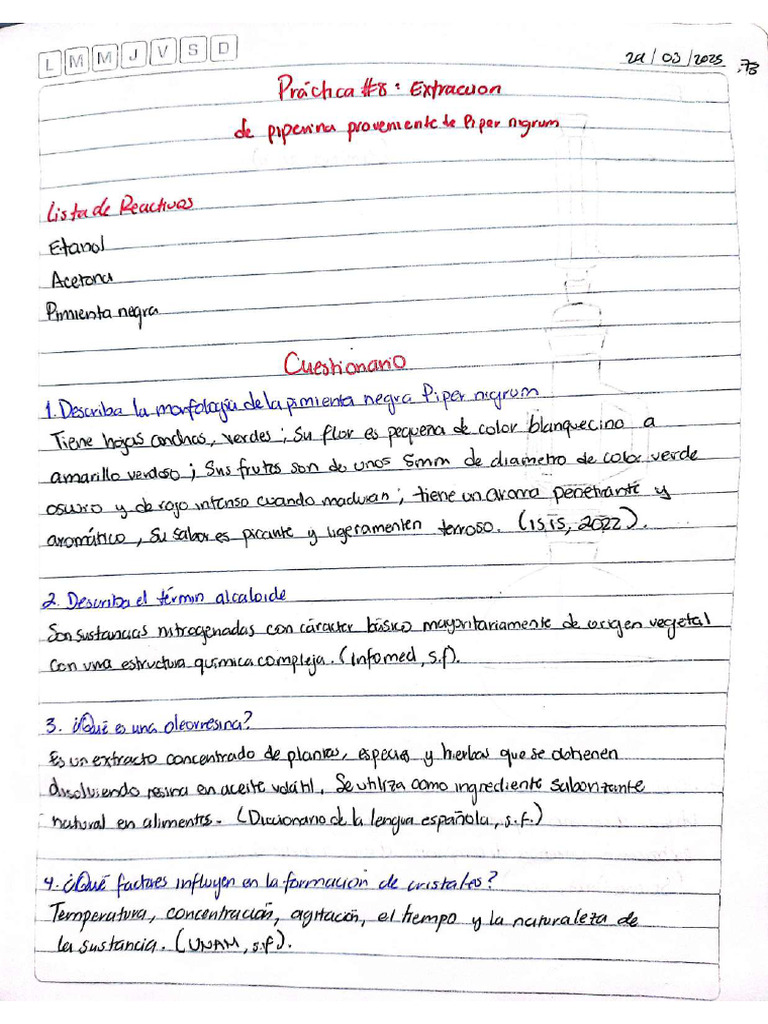 L M M J V S D
22/03/2025
Práctica #8: Extracción
de piperina proveniente de Piper nigrum
Lista de Reactivos
Etanol
Acetona
Pimienta negra
Cuestionario
1. Describa la morfología de la pimienta negra Piper nigrum
Tiene hojas anchas, verdes; Su flor es pequeña de color blanquecino a
amarillo verdoso; Sus frutos son de unos 5mm de diametro de color verde
oscuro y de rojo intenso cuando maduran; tiene un aroma penetrante y
aromático, Su sabor es picante y ligeramenten terroso. (ISIS, 2022).
2. Describa el términ alcaloide
Son sustancias nitrogenadas con cáracter básico mayoritariamente de origen vegetal
con una estructura química compleja. (Infomed, s.f).
3. ¿Qué es una oleorresina?
Es un extracto concentrado de plantas, especias y hierbas que se obtienen
disolviendo resina en aceite volátil. Se utiliza como ingrediente saborizante
natural en alimentos. (Diccionario de la lengua española, s.f.)
4. ¿Qué factores influyen en la formación de cristales?
Temperatura, concentración, agitación, el tiempo y la naturaleza de
la sustancia. (UNAM, s.f).